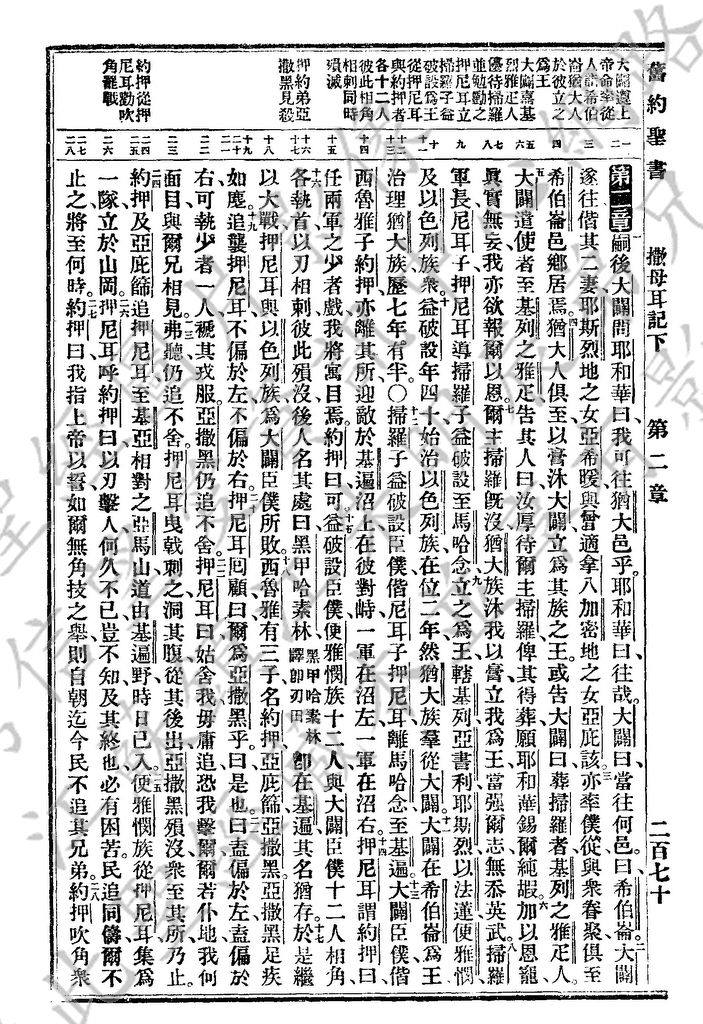 舊約聖書 撒母耳記下 第二章 二百七十
大闢遵上
帝命率從
人詣希伯
崙猶大人
於彼立之
爲王
大闢嘉基
烈雅疋人
優待掃羅
並勉勵之
押尼耳立
掃羅子益
破設爲王
從押尼耳
與約押者
各十二人
彼此相角
相刺同時
殞滅
押約弟亞
撒黑見殺
約押從押
尼耳勸吹
角罷戰
第二章嗣後大闢問耶和華曰我可往猶大邑乎耶和華曰往哉大闢曰當往何邑曰希伯崙大闢
遂往偕其二妻耶斯烈地之女亞希暖與曾適拿八加密地之女亞庇該亦率僕從與眾眷聚俱至
希伯崙邑鄉居焉猶大人俱至以膏沐大闢立爲其族之王或告大闢曰葬掃羅者基列之雅疋人
大闢遣使者至基列之雅疋告其人曰汝厚待爾主掃羅俾其得葬願耶和華錫爾純嘏加以恩寵
眞實無妄我亦欲報爾以恩爾主掃羅旣沒猶大族沐我以膏立我爲王當强爾志無忝英武掃羅
軍長尼耳子押尼耳導掃羅子益破設至馬哈念立之爲王轄基列亞書利耶斯烈以法蓮便雅憫
及以色列族眾益破設年四十始治以色列族在位二年然猶大族羣從大闢大闢在希伯崙爲王
治理猶大族歷七年有半○掃羅子益破設臣僕偕尼耳子押尼耳離馬哈念至基遍大闢臣僕偕
西魯雅子約押亦離其所迎敵於基遍沼上在彼對峙一軍在沼左一軍在沼右押尼耳謂約押曰
任兩軍之少者戲我將寓目焉約押曰可益破設臣僕便雅憫族十二人與大闢臣僕十二人相角
各執首以刃相刺彼此殞沒後人名其處曰黑甲哈素林黑甲哈素林譯卽刃田卽在基遍其名猶存於是繼
以大戰押尼耳與以色列族爲大闢臣僕所敗西魯雅有三子名約押亞庇篩亞撒黑亞撒黑足疾
如塵追襲押尼耳不偏於左不偏於右押尼耳回顧曰爾爲亞撒黑乎曰是也曰盍偏於左盍偏於
右可執少者一人褫其戎服亞撒黑仍追不舍押尼耳曰姑舍我毋庸追恐我擊爾爾若仆地我何
面目與爾兄相見弗聽仍追不舍押尼耳曳戟刺之洞其腹從其後出亞撒黑殞沒眾至其所乃止
約押及亞庇篩追押尼耳至基亞相對之亞馬山道由基遍野時日已入便雅憫族從押尼耳集爲
一隊立於山岡押尼耳呼約押曰以刃擊人何久不已豈不知及其終也必有困苦民追同儔爾不
止之將至何時約押曰我指上帝以誓如爾無角技之舉則自朝迄今民不追其兄弟約押吹角眾